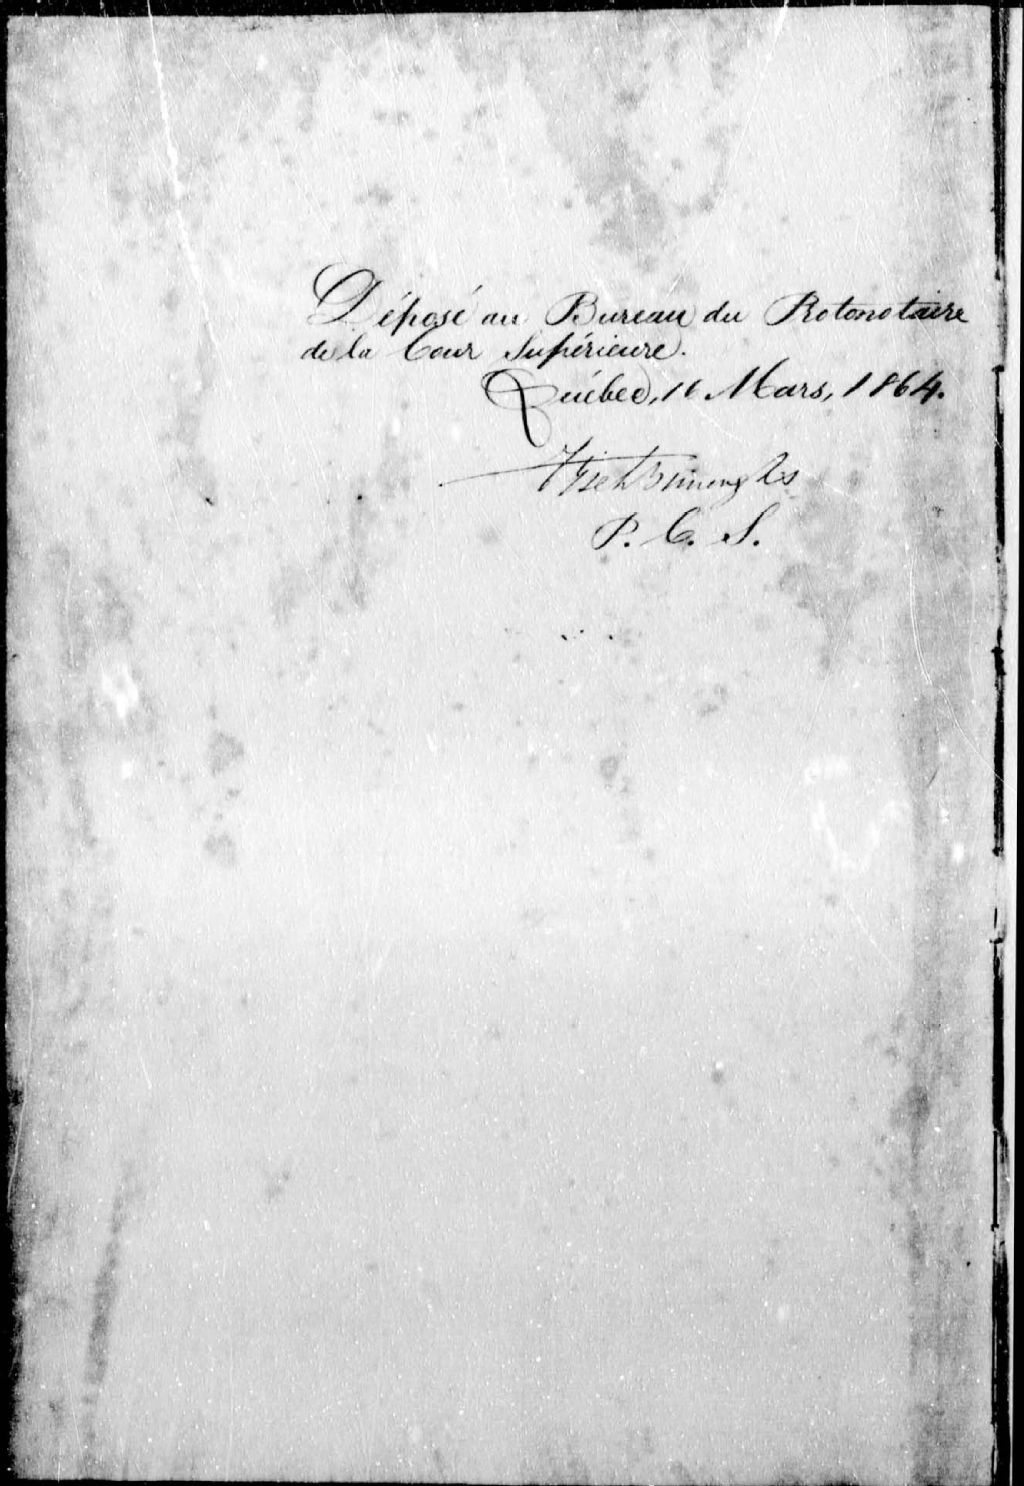 Déposé au Bureau du Protonotaire
de la Cour Supérieure.
Québec, 16 Mars, 1864.
P. C. S.